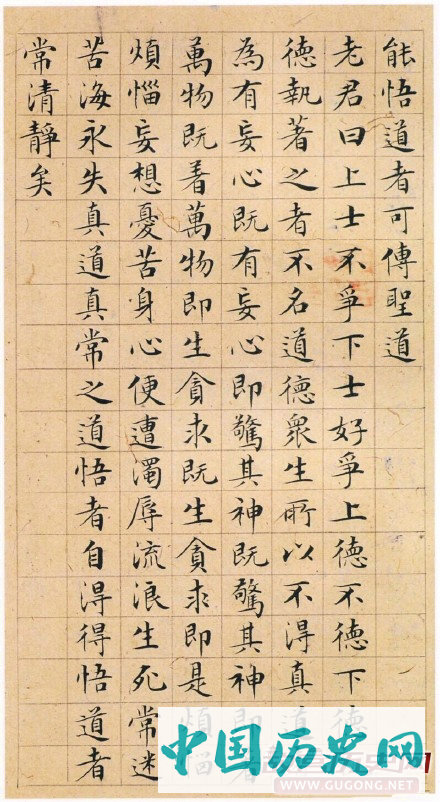 能悟道者可傳聖道
老君曰上士不爭下士好爭上德不德下德
德執著之者不名道德眾生所以不得真道
為有妄心既有妄心即驚其神既驚其神即
萬物既着萬物即生貪求既生貪求即是煩惱
煩惱妄想憂苦身心便遭濁辱流浪生死常迷
苦海永失真道真常之道悟者自得得悟道者
常清靜矣
中国历史网
WWW.GUGONG.NET